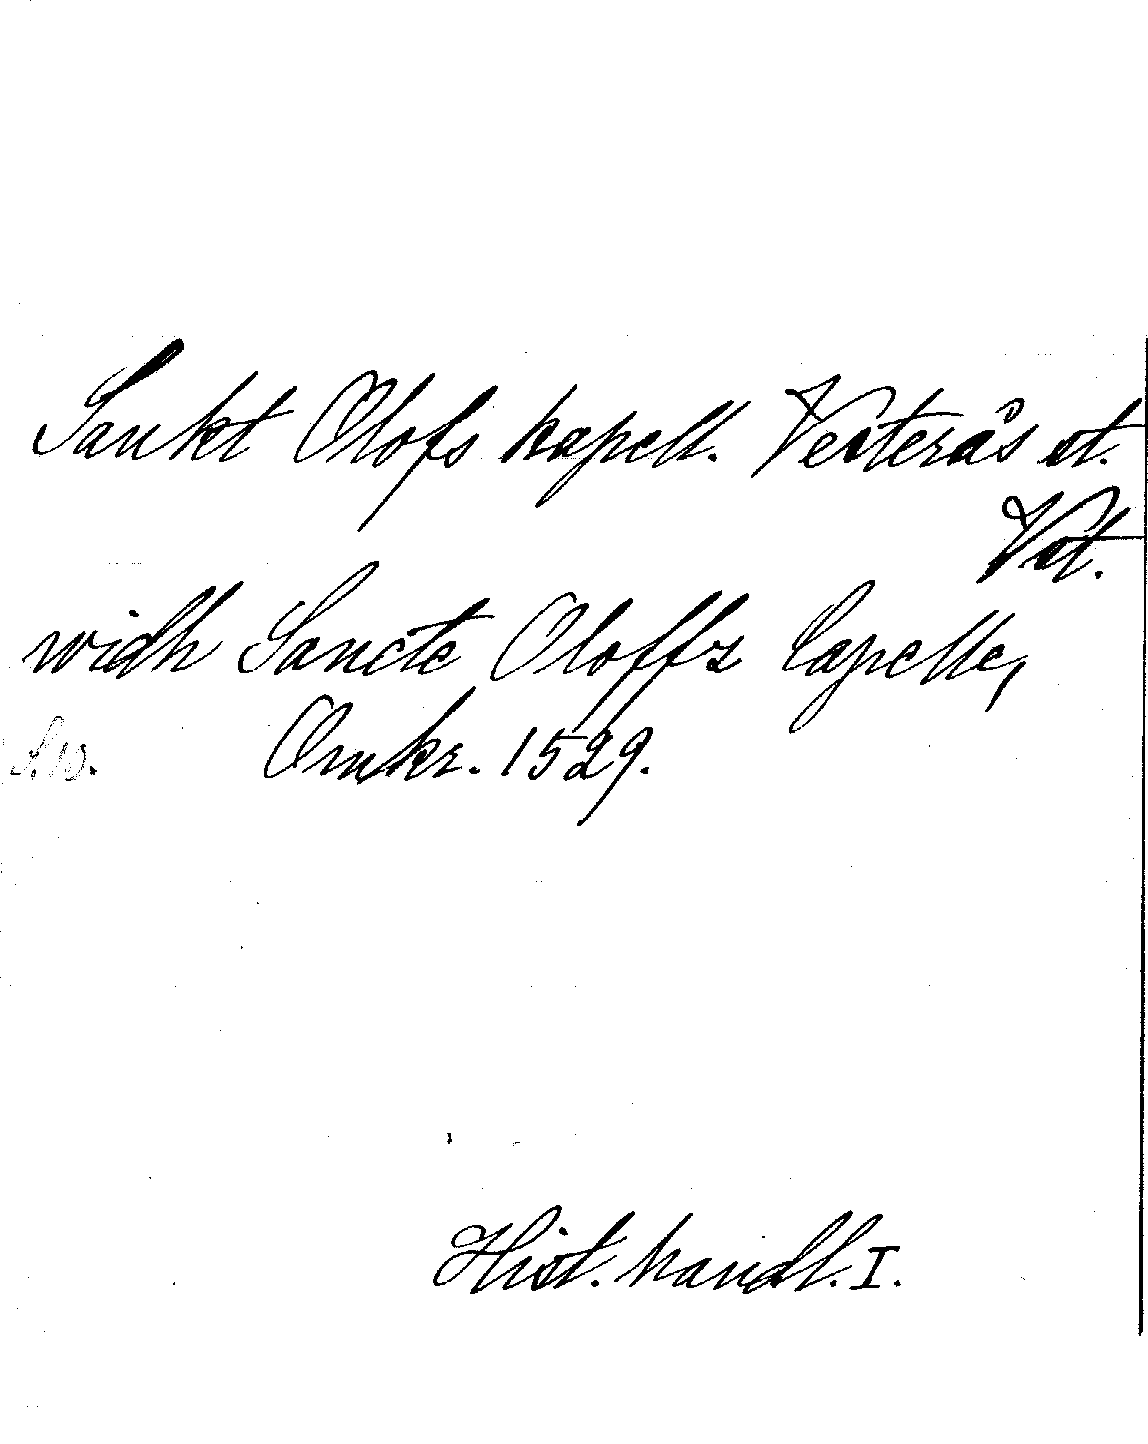 Sankt Olofs kapell. Vesterås st.
Vst.
widh Sancte Oloffz Capelle,
Omkr. 1529.
Hist. handl. I.